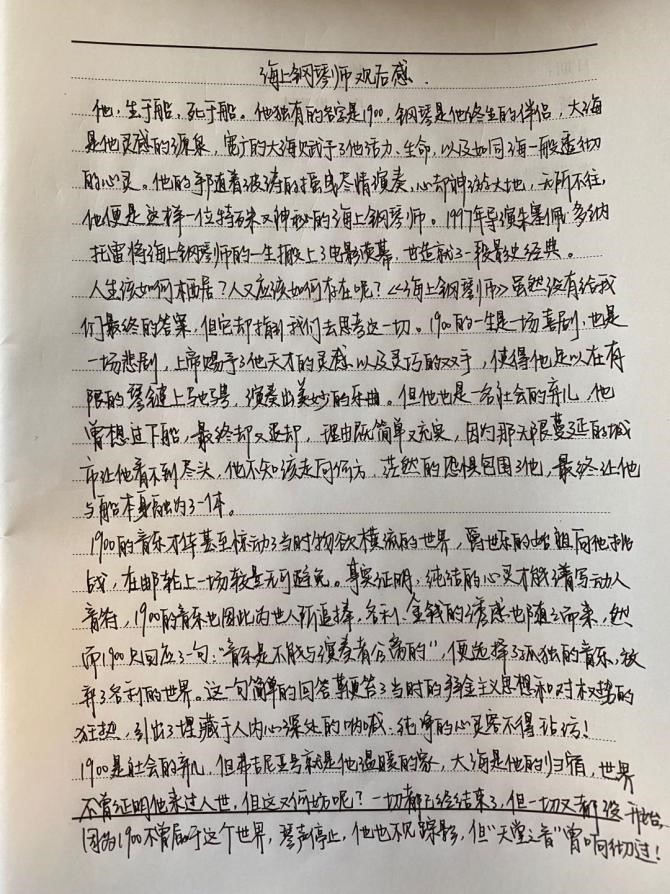 海上钢琴师观后感.
他,生于船,死于船。他独有的名字是1900,钢琴是他终生的伴侣,大海
是他灵感的源泉,宽广的大海赋于了他活力、生命,以及如同海一般透彻
的心灵。他的手随着波涛的摇曳尽情演奏,心却神游大地,无所不往,
他便是这样一位特殊又神秘的海上钢琴师。1997年导演朱塞佩·多纳
托雷将海上钢琴师的一生搬上了电影荧幕,也造就了一段影史经典。
人生该如何栖居?人又应该如何存在呢?《海上钢琴师》虽然没有给我
们最终的答案,但它却指引我们去思考这一切。1900的一生是一场喜剧,也是
一场悲剧,上帝赐予了他天才的灵感以及灵巧的双手,使得他足以在有
限的琴键上驰骋,演奏出美妙的乐曲。但他也是一名社会的弃儿,他
曾想过下船,最终却又退却,理由既简单又充实,因为那无限蔓延的城
市让他看不到尽头,他不知该走向何方,茫然的恐惧包围了他,最终让他
与船本身融为了一体。
1900的音乐才华甚至惊动了当时物欲横流的世界,爵士乐的始祖向他挑
战,在邮轮上一场较量无可避免。事实证明,纯洁的心灵才能谱写动人
音符,1900的音乐也因此为世人所追捧,名利、金钱的诱惑也随之而来,然
而1900只回应了一句:"音乐是不能与演奏者分离的",便选择了孤独的音乐,放
弃了名利的世界。这一句简单的回答鞭笞了当时的拜金主义思想和对权势的
狂热,引出了埋藏于人内心深处的呐喊:纯净的心灵容不得玷污!
1900是社会的弃儿,但弗吉尼亚号就是他温暖的家,大海是他的归宿,世界
不曾证明他来过人世,但这又何妨呢?一切都已经结束了,但一切又都没开始,
因为1900不曾属于这个世界,琴声停止,他也不见踪影,但"天堂之音"曾响彻过!